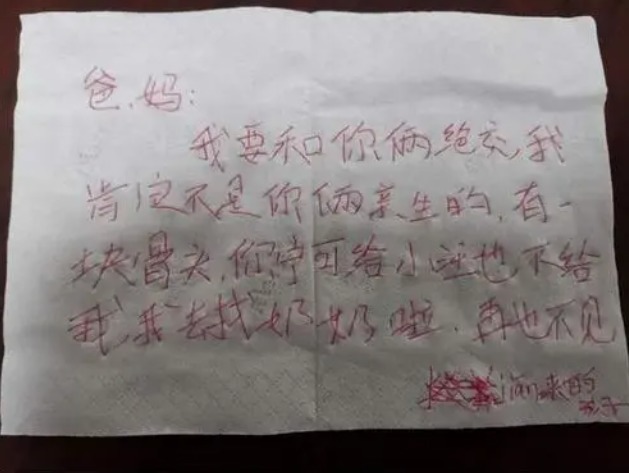 爸.妈:
我要和你俩绝交,我
肯定不是你俩亲生的,有一
块骨头,你宁可给小旺也不给
我,我去找奶奶啦.再也不见
捡来的
孩子